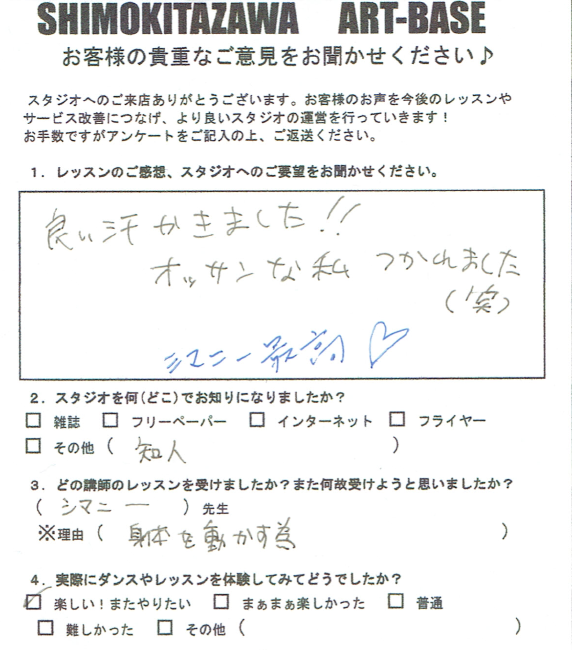 SHIMOKITAZAWA ART-BASE
お客様の貴重なご意見をお聞かせください♪
スタジオへのご来店ありがとうございます。お客様のお声を今後のレッスンや
サービス改善につなげ、より良いスタジオの運営を行っていきます！
お手数ですがアンケートをご記入の上、ご返送ください。
1．レッスンのご感想、スタジオへのご要望をお聞かせください。
良い汗かきました!!
オッサンな私 つかれました
(笑)
シマニー 最高 ♡
2．スタジオを何(どこ)でお知りになりましたか？
□ 雑誌 □ フリーペーパー □ インターネット □ フライヤー
□ その他 ( 知人 )
3．どの講師のレッスンを受けましたか？また何故受けようと思いましたか？
( シマニー ) 先生
※理由 ( 身体を動かす為 )
4．実際にダンスやレッスンを体験してみてどうでしたか？
☑ 楽しい！またやりたい □ まぁまぁ楽しかった □ 普通
□ 難しかった □ その他 ( )